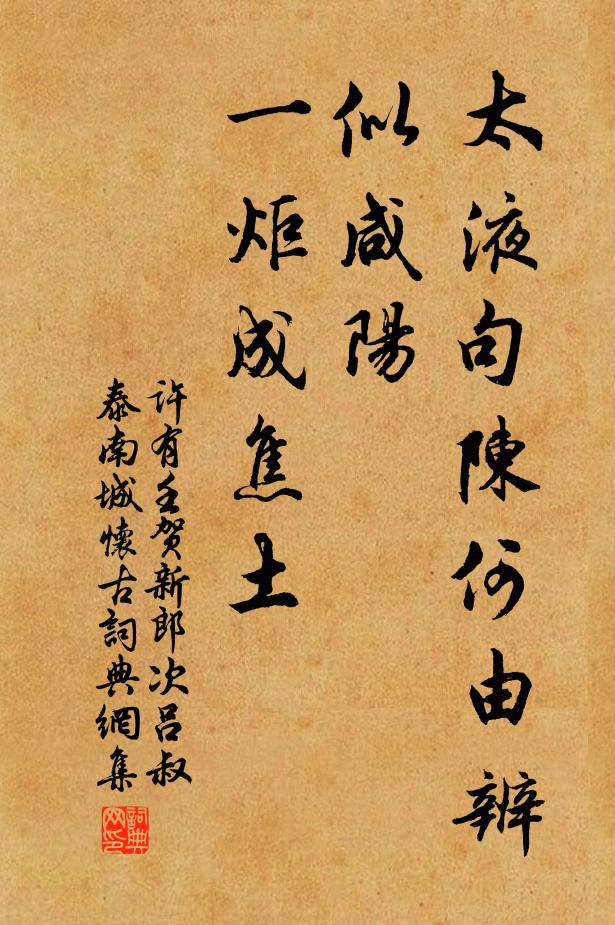 太液句陳何由辨
似咸陽
一炬成焦土
許有壬賀新郎次呂叔
泰南城懷古詞典網集
詞典
网印